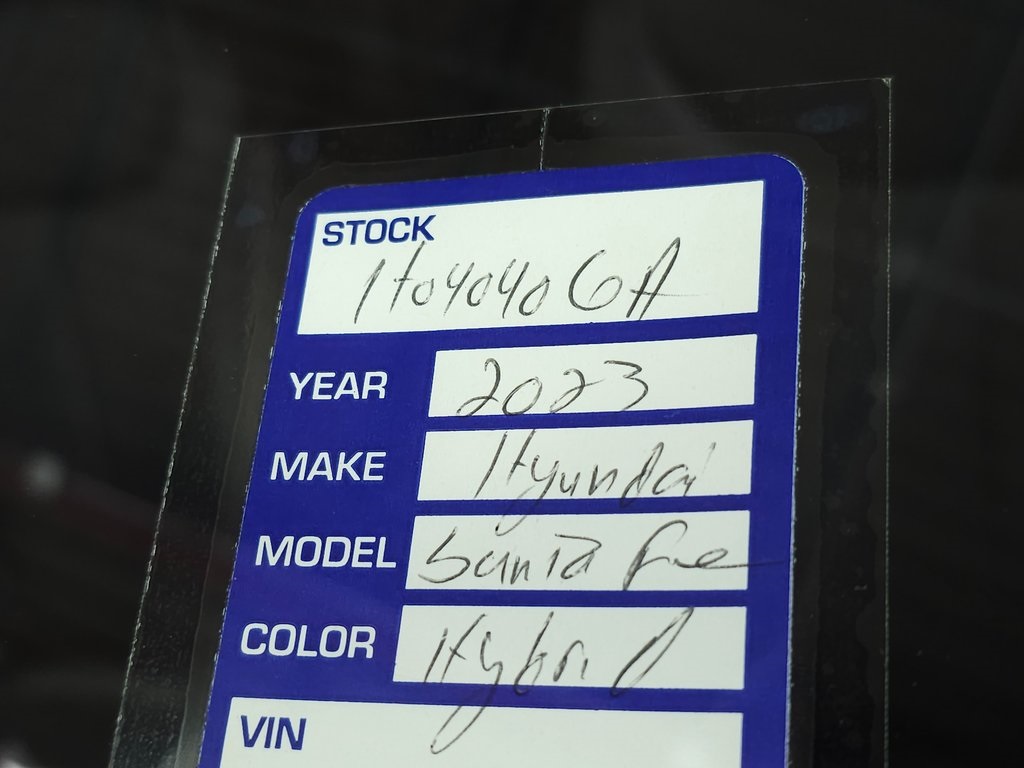 STOCK
H040406A
YEAR 2023
MAKE Hyundai
MODEL Santa Fe
COLOR Hybrid
VIN